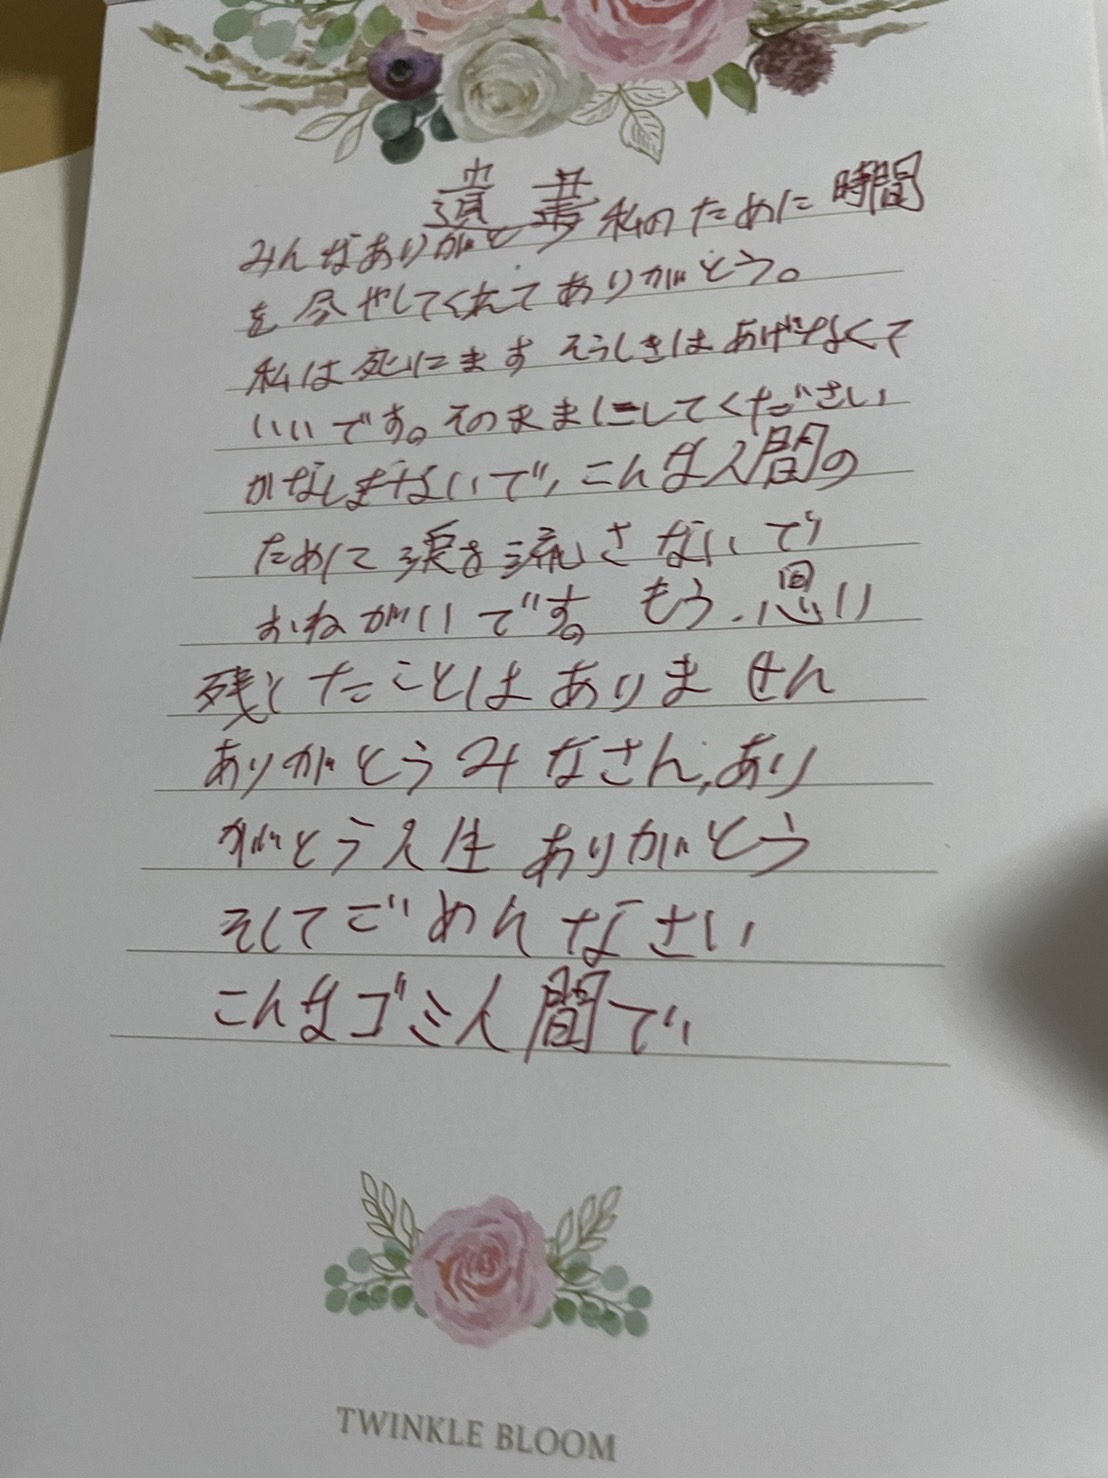 遺書
みんなありがとう 私のために時間
を尽やしてくれてありがとう。
私は死にます そうしきはあげなくて
いいです。そのままにしてください
かなしまないで、こんな人間の
ために涙を流さないで
おねがいです。もう、思い
残したことはありません
ありがとうみなさん、あり
がとう人生 ありがとう
そしてごめんなさい
こんなゴミ人間で
TWINKLE BLOOM